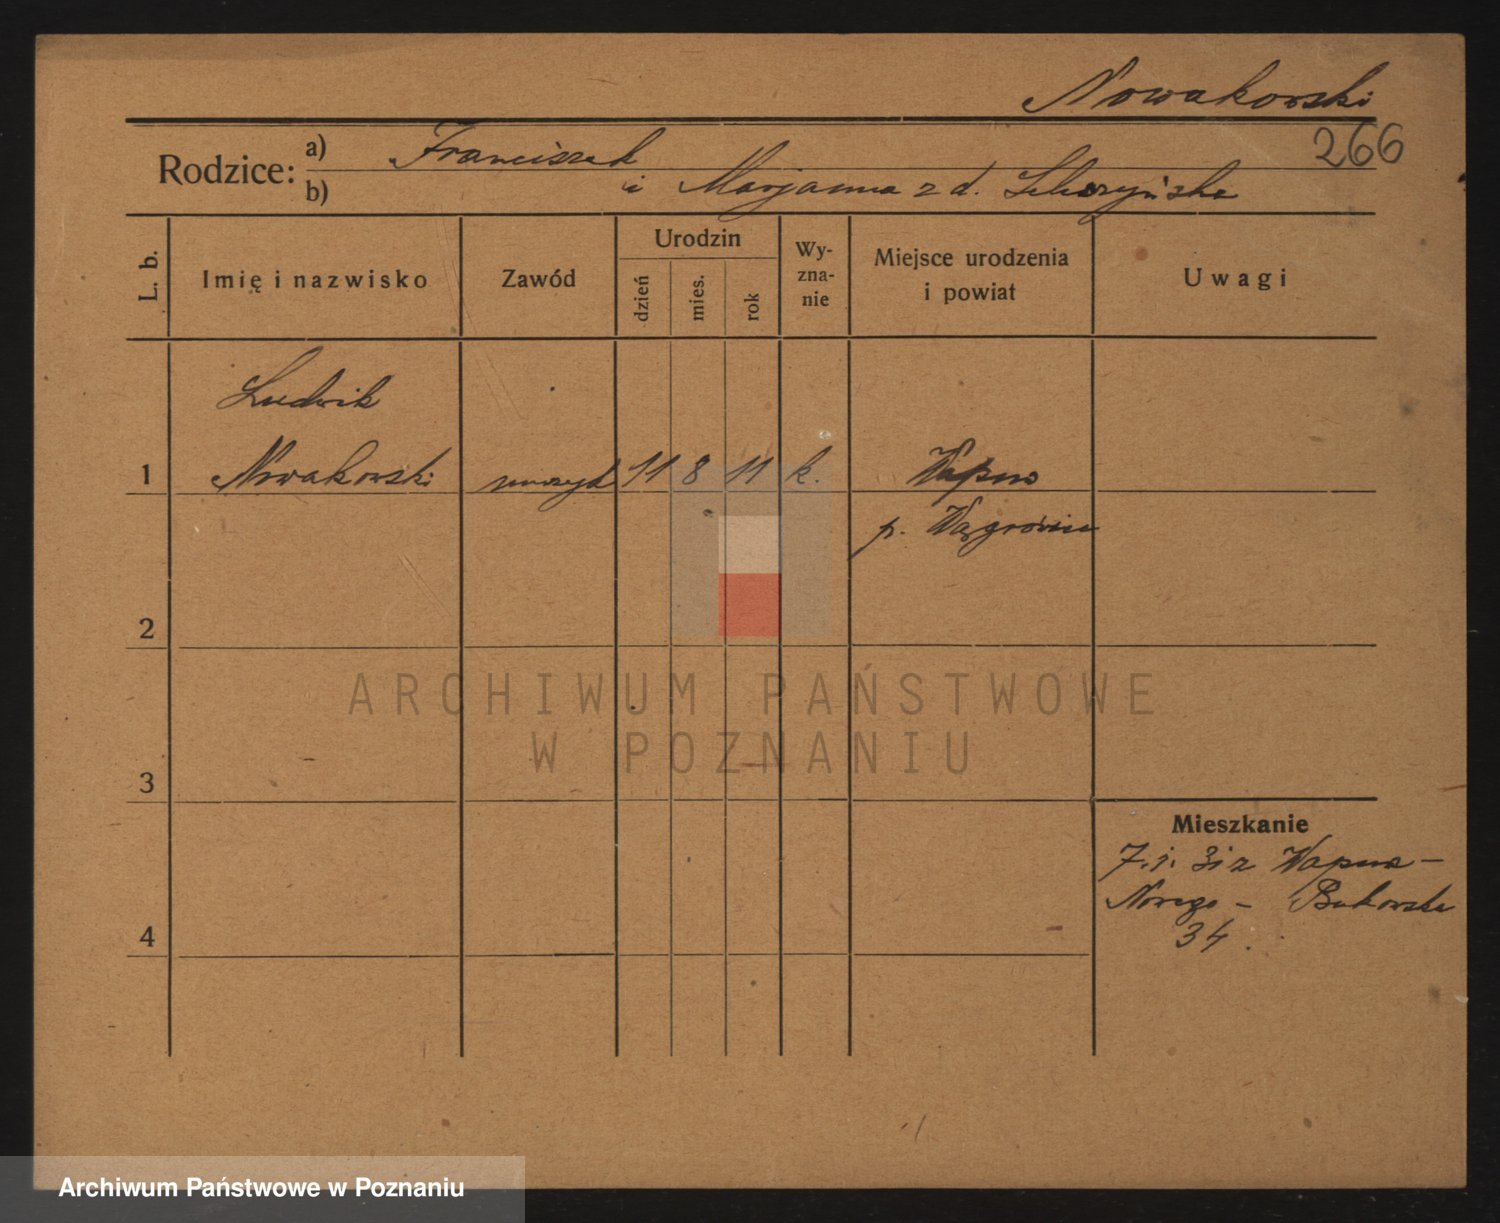 Nowakowski
266
Rodzice: a) Franciszek
b) i Marjanna z d.
L. b.
Imię i nazwisko
Zawód
Urodzin
dzień
mies.
rok
Wy-
zna-
nie
Miejsce urodzenia
i powiat
Uwagi
Ludwik
1 Nowakowski muzyk 11 8 11 k. Wapno
p. Wągrowiec
2
ARCHIWUM PAŃSTWOWE
W POZNANIU
3
Mieszkanie
7.i. 31 z Wapna -
Nowego - Bukowska
34.
4
Archiwum Państwowe w Poznaniu